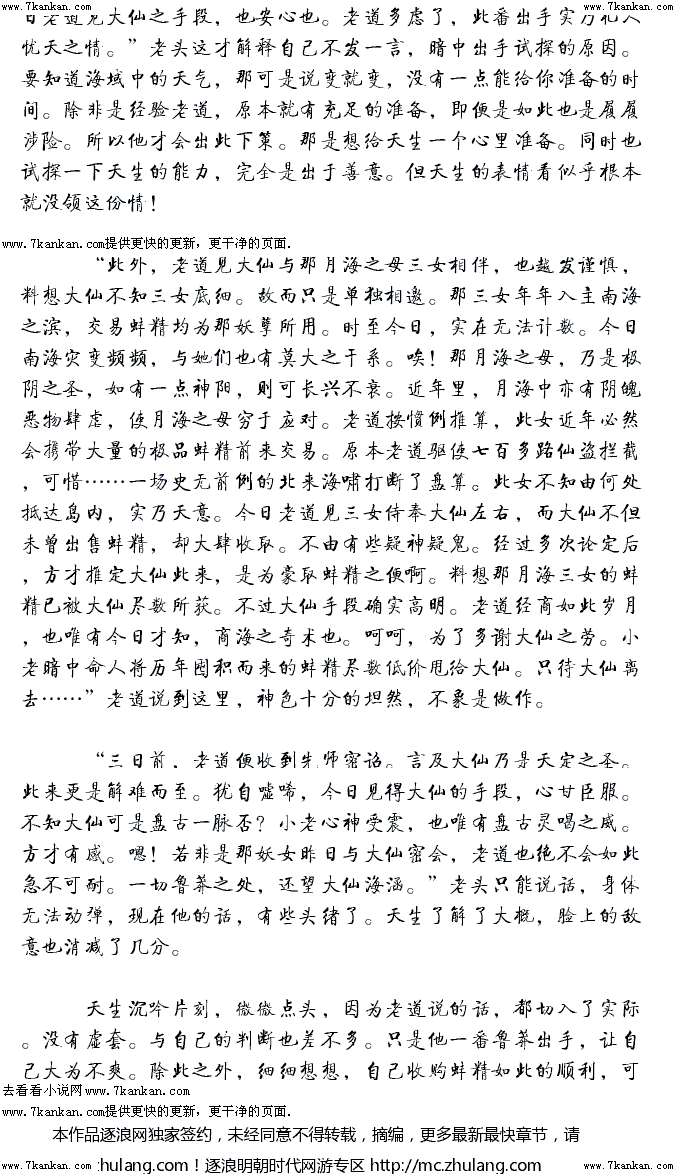 www.7kankan.com www.7kankan.com
日老道见大仙之手段，也安心也。老道多虑了，此番出手实乃杞人
忧天之情。”老头这才解释自己不发一言，暗中出手试探的原因。
要知道海域中的天气，那可是说变就变，没有一点能给你准备的时
间。除非是经验老道，原本就有充足的准备，即便是如此也是履履
涉险。所以他才会出此下策。那是想给天生一个心里准备。同时也
试探一下天生的能力，完全是出于善意。但天生的表情看似乎根本
就没领这份情！
www.7kankan.com提供更快的更新，更干净的页面.
“此外，老道见大仙与那月海之母三女相伴，也越发谨慎，
料想大仙不知三女底细。故而只是单独相邀。那三女年年入主南海
之滨，交易蚌精均为那妖孽所用。时至今日，实在无法计数。今日
南海灾变频频，与她们也有莫大之干系。唉！那月海之母，乃是极
阴之圣，如有一点神阳，则可长兴不衰。近年里，月海中亦有阴魄
恶物肆虐，使月海之母穷于应对。老道按惯例推算，此女近年必然
会携带大量的极品蚌精前来交易。原本老道驱使七百多路仙盗拦截
，可惜……一场史无前例的北来海啸打断了盘算。此女不知由何处
抵达岛内，实乃天意。今日老道见三女侍奉大仙左右，而大仙不但
未曾出售蚌精，却大肆收取。不由有些疑神疑鬼。经过多次论定后
，方才推定大仙此来，是为豪取蚌精之便啊。料想那月海三女的蚌
精已被大仙尽数所获。不过大仙手段确实高明。老道经商如此岁月
，也唯有今日才知，商海之奇术也。呵呵，为了多谢大仙之劳。小
老暗中命人将历年囤积而来的蚌精尽数低价甩给大仙。只待大仙离
去……”老道说到这里，神色十分的坦然，不象是做作。
“三日前，老道便收到先师密诏。言及大仙乃是天定之圣。
此来更是解难而至。犹自嘘唏，今日见得大仙的手段，心甘臣服。
不知大仙可是盘古一脉否？小老心神受震，也唯有盘古灵喝之威。
方才有感。嗯！若非是那妖女昨日与大仙密会，老道也绝不会如此
急不可耐。一切鲁莽之处，还望大仙海涵。”老头只能说话，身体
无法动弹，现在他的话，有些头绪了。天生了解了大概，脸上的敌
意也消减了几分。
天生沉吟片刻，微微点头，因为老道说的话，都切入了实际
。没有虚套。与自己的判断也差不多。只是他一番鲁莽出手，让自
己大为不爽。除此之外，细细想想，自己收购蚌精如此的顺利，可
去看看小说网www.7kankan.com
www.7kankan.com提供更快的更新，更干净的页面.
本作品逐浪网独家签约，未经同意不得转载，摘编，更多最新最快章节，请
www.7kankan.com zhulang.com！逐浪明朝时代网游专区 http://mc.zhulang.com www.7kankan.com